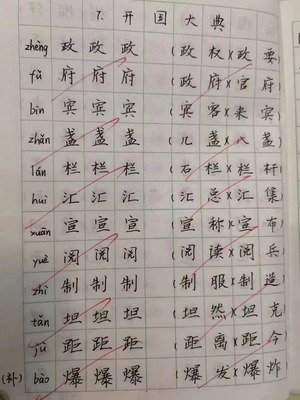 7. 开国大典
zhèng 政 政 政 (政权)(政要
fǔ 府 府 府 (政府)(官府
bīn 宾 宾 宾 (宾客)(来宾
zhǎn 盏 盏 盏 (几盏)(八盏
lán 栏 栏 栏 (石栏)(栏杆
huì 汇 汇 汇 (汇总)(汇集
xuān 宣 宣 宣 (宣称)(宣布
yuè 阅 阅 阅 (阅读)(阅兵
zhì 制 制 制 (制服)(制造
tǎn 坦 坦 坦 (坦然)(坦克
jù 距 距 距 (距离)(距今
(补) bào 爆 爆 爆 (爆发)(爆炸